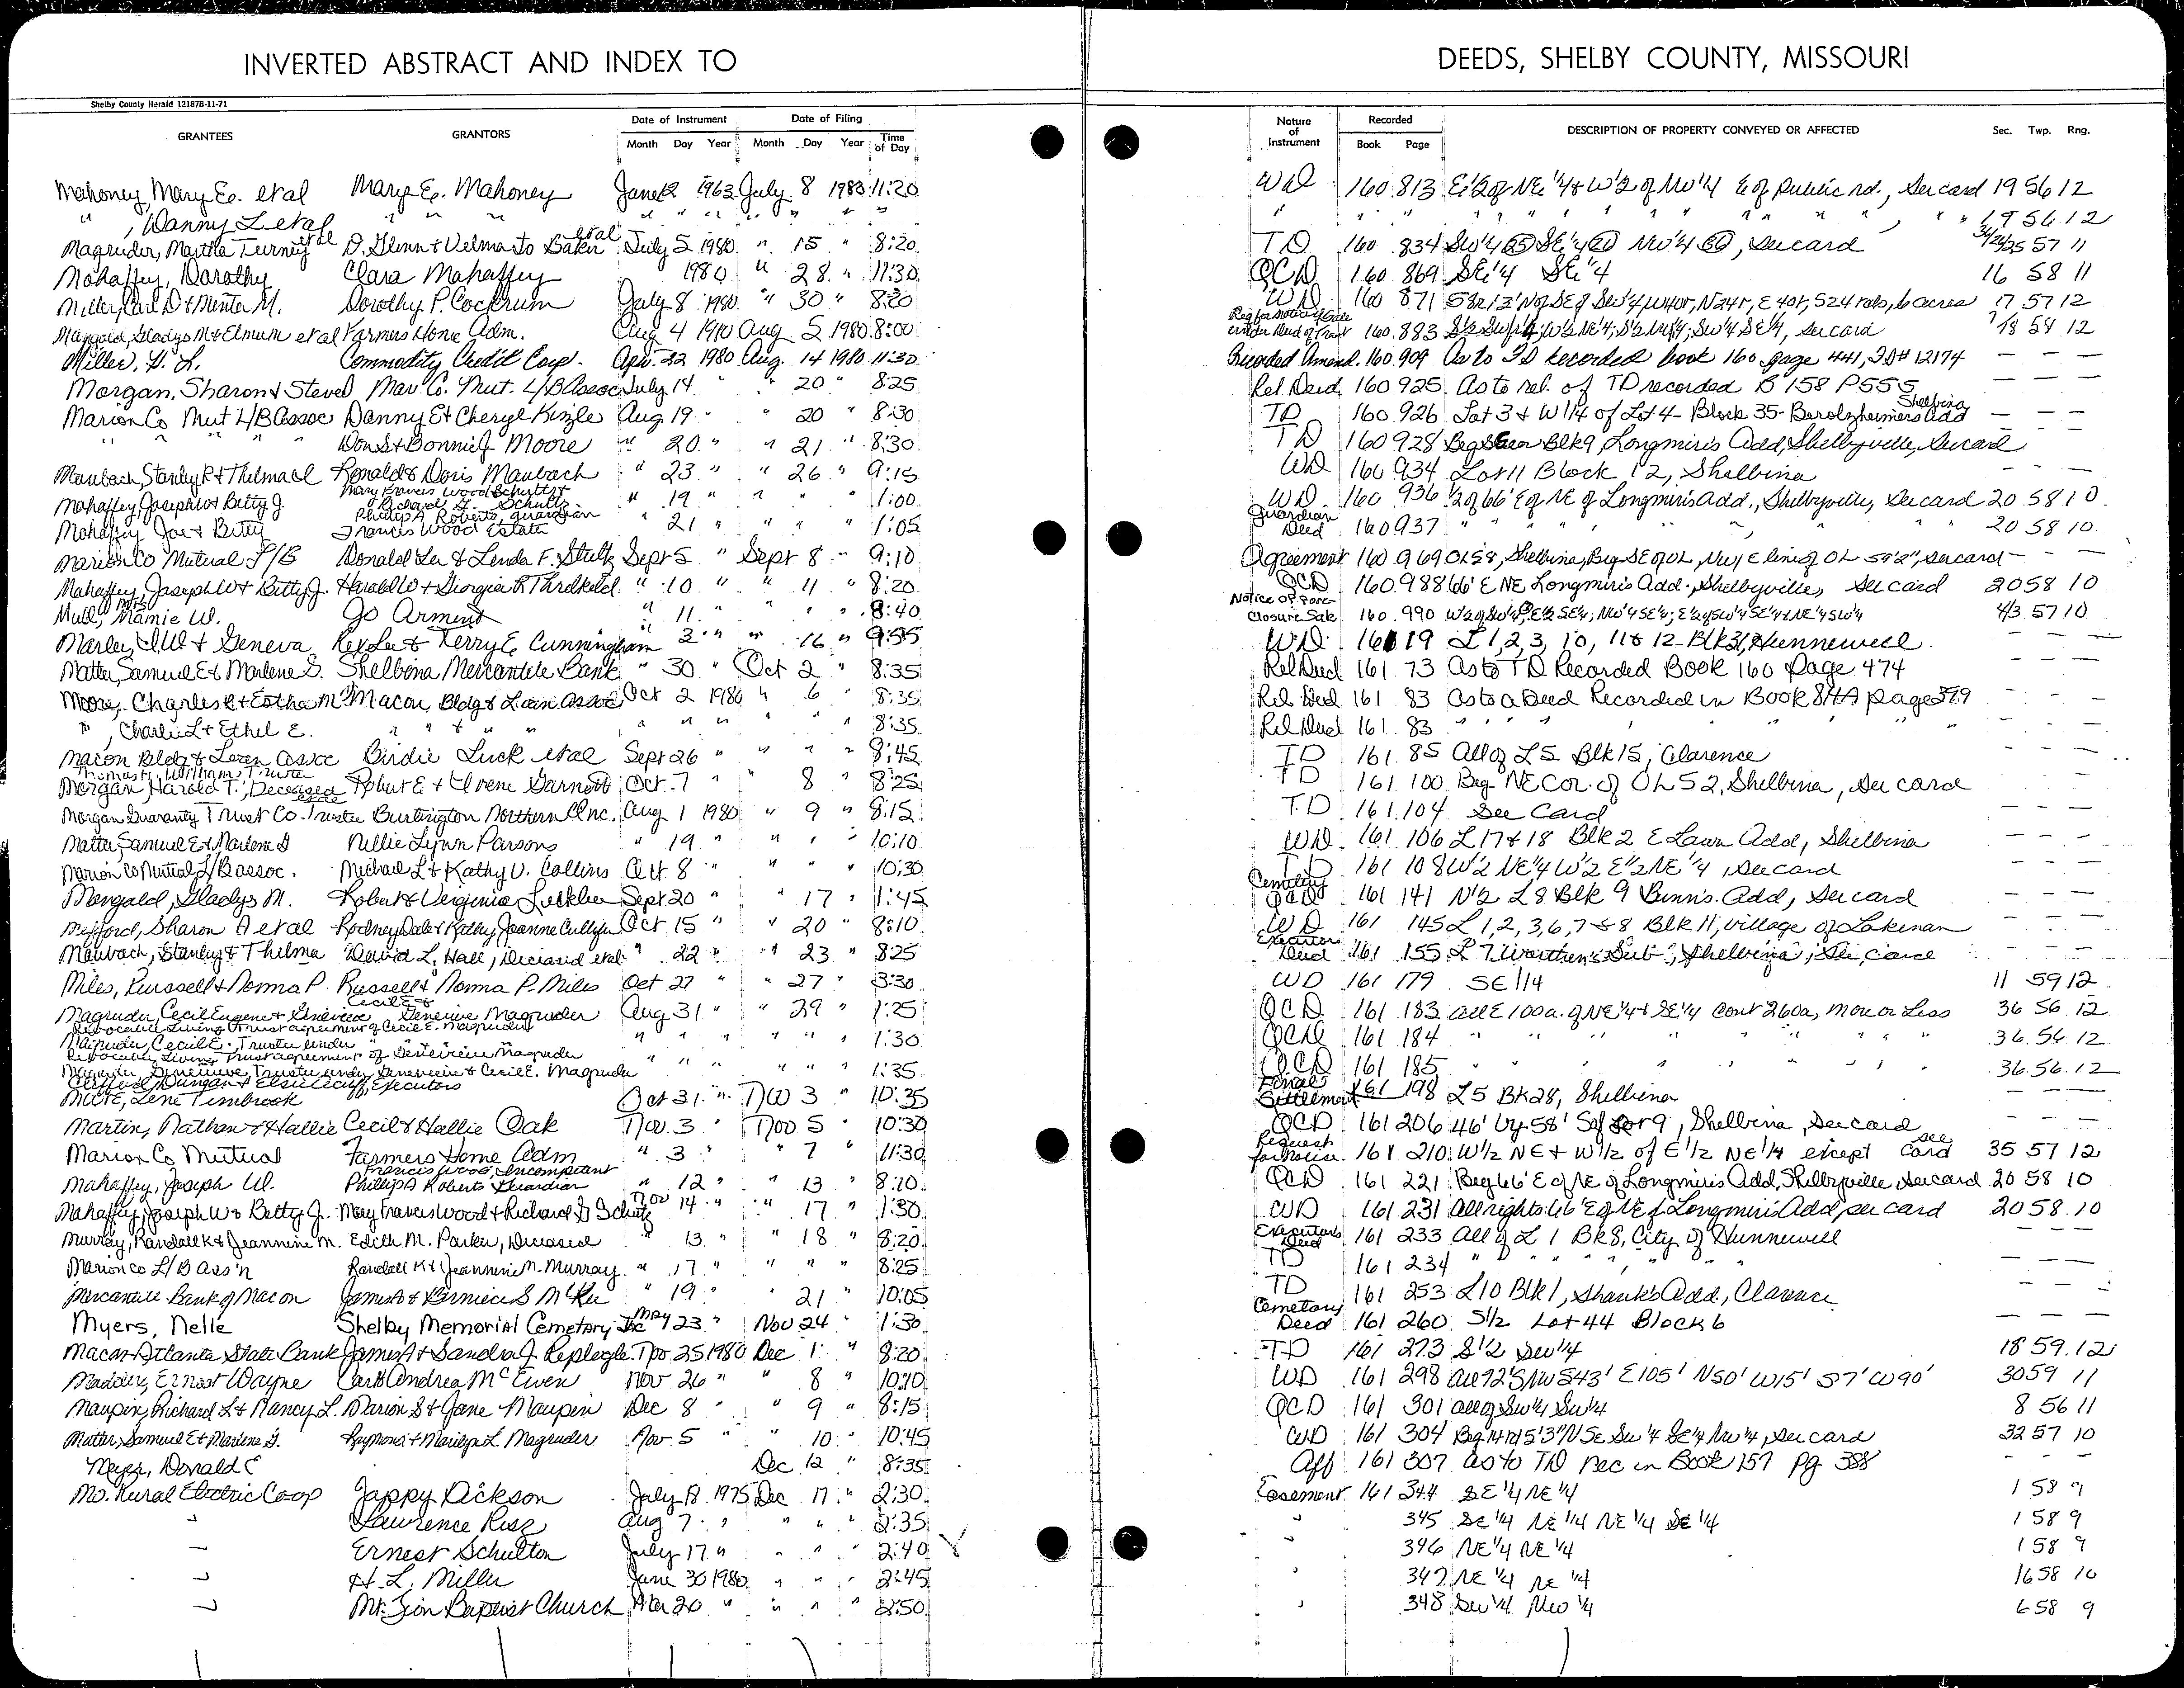 INVERTED ABSTRACT AND INDEX TO DEEDS, SHELBY COUNTY, MISSOURI
Shelby County Herald 12187B-11-71
GRANTEES GRANTORS Date of Instrument Date of Filing Time of Day Nature of Instrument Recorded DESCRIPTION OF PROPERTY CONVEYED OR AFFECTED Sec. Twp. Rng.
Month Day Year Month Day Year Book Page
Mahoney, Mary E. etal Mary E. Mahoney June 12 1963 July 8 1980 11:20 WD 160 813 E1/2 of NE1/4 & W1/2 of NW1/4 E of public rd., See card 19 56 12
" , Danny L etal " " " " " " " " " " " " " " " 19 56 12
Magruder, Martha Turney etal D. Glenn & Velma Jo Baker etal July 5 1980 " 15 " 8:20 TD 160 834 SW1/4 25 SE1/4 NW1/4, See card 57 11
Mahaffey, Dorothy Clara Mahaffey 1980 " 28 " 11:30 QCD 160 869 SE1/4 SE1/4 16 58 11
Miller, Carl D & Minter M. Dorothy P. Cockrum July 8 1980 " 30 " 8:20 WD 160 871 58r 13' N of SE of SW1/4, W40r, N24r, E40r, S24 rods, 6 acres 17 57 12
Mangold, Gladys M & Elmum etal Farmers Home Adm. Aug 4 1980 Aug 5 1980 8:00 Req for Notice of Sale under Deed of Trust 160 883 S1/2 SW1/4; W1/2 NE1/4; S1/2 NW1/4; SW1/4 SE1/4, See card 18 58 12
Miller, H. L. Commodity Credit Corp. Apr. 22 1980 Aug. 14 1980 11:30 Recorded Amend. 160 909 As to TD recorded book 160 page 441, ID# 12174 — — —
Morgan, Sharon & Steve Mar. Co. Mut. L/B Assoc July 14 " " 20 " 8:25 Rel Deed 160 925 As to rel. of TD recorded B 158 P555 — — —
Marion Co Mut L/B Assoc Danny E & Cheryl Kinzle Aug 19 " " 20 " 8:30 TD 160 926 Lot 3 & W 1/4 of Lot 4 - Block 35 - Berolzheimers Add Shelbina — — —
" " " " " Don S & Bonnie J Moore " 20 " " 21 " 8:30 TD 160 928 Beg SE cor Blk 9, Longmires Add, Shelbyville, See card
Maubach, Stanley R & Thelma L Ronald & Doris Maubach " 23 " " 26 " 9:15 WD 160 934 Lot 11 Block 12, Shelbina — — —
Mahaffey, Joseph W & Betty J. Mary Francis Wood Schultz & Richard G. Schultz " 19 " " " 1:00 WD 160 936 1/2 of 66' E of NE of Longmires Add., Shelbyville, See card 20 58 10
Mahaffey Joe & Betty Phillip A Roberts, guardian Francis Wood Estate " 21 " " " " 1:05 Guardian Deed 160 937 " " " " " 20 58 10
Marion Co Mutual L/B Donald Lee & Linda F. Stultz Sept 5 " Sept 8 " 9:10 Agreement 160 969 OL 58, Shelbina, Beg SE of OL, NW/E line of OL 54'2", See card — —
Mahaffey, Joseph W & Betty J. Harold W & Giorgia R Threlkeld " 10 " " 11 " 8:20 QCD 160 988 66' E NE Longmires Add., Shelbyville, See card 20 58 10
Mull, Mamie W. Go Arment " 11 " " " " 8:40 Notice of Foreclosure Sale 160 990 W1/2 of SW1/4; E1/2 SE1/4; NW1/4 SE1/4; E1/2 of SW1/4 SE1/4 & NE1/4 SW1/4 4/3 57 10
Marler, I.W. & Geneva Rex Lee & Terry E Cunningham " 3 " " 16 " 9:55 WD 161 19 L 1, 2, 3, 10, 11 & 12 - Blk 31, Hunnewell — — —
Matter, Samuel E & Marlene G. Shelbina Mercantile Bank " 30 " Oct 2 " 8:35 Rel Deed 161 73 As to TD Recorded Book 160 Page 474
Moore, Charles R & Eotha M Macon Bldg & Loan Assoc Oct 2 1980 " 6 " 8:35 Rel Deed 161 83 As to a Deed Recorded in Book 84A page 379 — — —
" , Charlie L & Ethel E. " " " " " " " " " 8:35 Rel Deed 161 83 " " " " " "
Macon Bldg & Loan Assoc Birdie Luck etal Sept 26 " " " " 8:45 TD 161 85 All of L5 Blk 15, Clarence — — —
Thomas, William, Trustee
Morgan, Harold T., Deceased Robert E & Irene Garnett Oct. 7 " " 8 " 8:25 TD 161 100 Beg NE Cor. of OL 52, Shelbina, See card —
Morgan Guaranty Trust Co. Trustee Burlington Northern Inc. Aug 1 1980 " 9 " 8:15 T.D 161 104 See Card — — —
Matter, Samuel E & Marlene G Nellie Lynn Parsons " 19 " " " " 10:10 WD 161 106 L 17 & 18 Blk 2 E Lawn Add, Shelbina — — —
Marion Co Mutual L/B assoc. Michael L & Kathy V. Collins Oct. 8 " " " " 10:30 TD 161 108 W1/2 NE1/4 W1/2 E1/2 NE1/4, See card — — —
Mangold, Gladys M. Robert & Virginia Sept 20 " " 17 " 1:45 Cemetery Deed 161 141 N1/2 L8 Blk 9 Bunn's Add, See card — — —
Mefford, Sharon A etal Rodney Dale & Kathy Jeanne Oct 15 " " 20 " 8:10 WD 161 145 L 1, 2, 3, 6, 7 & 8 Blk 11, Village of Lakenan — — —
Maubach, Stanley & Thelma David L. Hall, Deceased etal " 22 " " 23 " 8:25 Executor Deed 161 155 L 7 Worthen's Sub, Shelbina, See card — — —
Miles, Russell & Norma P. Russell & Norma P. Miles Oct 27 " " 27 " 3:30 WD 161 179 SE 1/4 11 59 12
Magruder, Cecil Eugene & Genevieve Cecil E & Genevive Magruder Aug 31 " " 29 " 1:25 QCD 161 183 All E 100a. of NE1/4 & SE1/4 Cont 260a, More or Less 36 56 12
Revocable Living Trust agreement of Cecil E. Magruder
Magruder, Cecil E. Trustee under " " " " " " " 1:30 QCD 161 184 " " " " " 36 56 12
Revocable Living Trust agreement of Genevieve Magruder
Magruder, Genevieve, Trustee under Genevieve & Cecil E. Magruder " " " " " " 1:35 QCD 161 185 " " " " " 36 56 12
Clifford Dungan & Elsie Executors
Lene Timbrook Oct 31 " Nov 3 " 10:35 Final Settlement 161 198 L5 Bk 28, Shelbina — — —
Martin, Nathan & Hallie Cecil & Hallie Oak Nov. 3 " Nov 5 " 10:30 QCD 161 206 46' by 58' 9, Shelbina, See card — — —
Marion Co Mutual Farmers Home Adm " 3 " " 7 " 11:30 Request for Notice 161 210 W 1/2 NE & W 1/2 of E 1/2 NE 1/4 except see card 35 57 12
Mahaffey, Joseph W. Francis Wood, Incompetent Phillip A Roberts Guardian " 12 " " 13 " 8:10 QCD 161 221 Beg 66' E of NE of Longmires Add, Shelbyville, See card 20 58 10
Mahaffey, Joseph W & Betty J. Mary Frances Wood & Richard G Schultz Nov 14 " " 17 " 1:30 WD 161 231 All rights 66' E of NE of Longmires Add, see card 20 58 10
Murray, Randall K & Jeannine M. Edith M. Parker, Deceased " 13 " " 18 " 8:20 Executors Deed 161 233 All of L 1 Bk 8, City of Hunnewell
Marion Co L/B Ass'n Randall K & Jeannine M. Murray " 17 " " " " 8:25 TD 161 234 " " " " " — — —
Mercantile Bank of Macon James A & Bernice S McKee " 19 " " 21 " 10:05 TD 161 253 L10 Blk 1, Shanks Add, Clarence — — —
Myers, Nelle Shelby Memorial Cemetary Inc May 23 " Nov 24 " 1:30 Cemetary Deed 161 260 S1/2 Lot 44 Block 6 — — —
Macon-Atlanta State Bank James A & Sandra J. Replogle Nov 25 1980 Dec 1 " 8:20 TD 161 273 S1/2 SW1/4 18 59 12
Maddox, Ernest Wayne Carl & Andrea McEwen Nov 26 " " 8 " 10:10 WD 161 298 All 72' S NW 543' E105' N50' W15' S7' W90' 30 59 11
Maupin, Richard L & Nancy L. Marion S & Jane Maupin Dec 8 " " 9 " 8:15 QCD 161 301 all of SW1/4 SW1/4 8 56 11
Matter, Samuel E & Marlene G. Raymond & Marilyn L. Magruder Nov. 5 " " 10 " 10:45 WD 161 304 Beg 14 rd 5'3" N SE SW1/4 SE1/4 NW1/4, See card 32 57 10
Meyer, Donald C Dec 12 " 8:35 Aff 161 307 as to TD rec in Book 157 pg 388 — — —
Mo. Rural Electric Co-op Jappy Dickson July 18 1975 Dec 17 " 2:30 Easement 161 344 SE 1/4 NE 1/4 1 58 9
" Lawrence Aug 7 " " " " 2:35 " 345 SE 1/4 NE 1/4 NE 1/4 SE 1/4 1 58 9
" Ernest Schulton July 17 " " " " 2:40 346 NE 1/4 NE 1/4 1 58 9
" H. L. Miller June 30 1980 " " " 2:45 " 347 NE 1/4 NE 1/4 16 58 10
" Mt. Zion Baptist Church Mar 20 " " " " 2:50 " 348 SW 1/4 NW 1/4 6 58 9